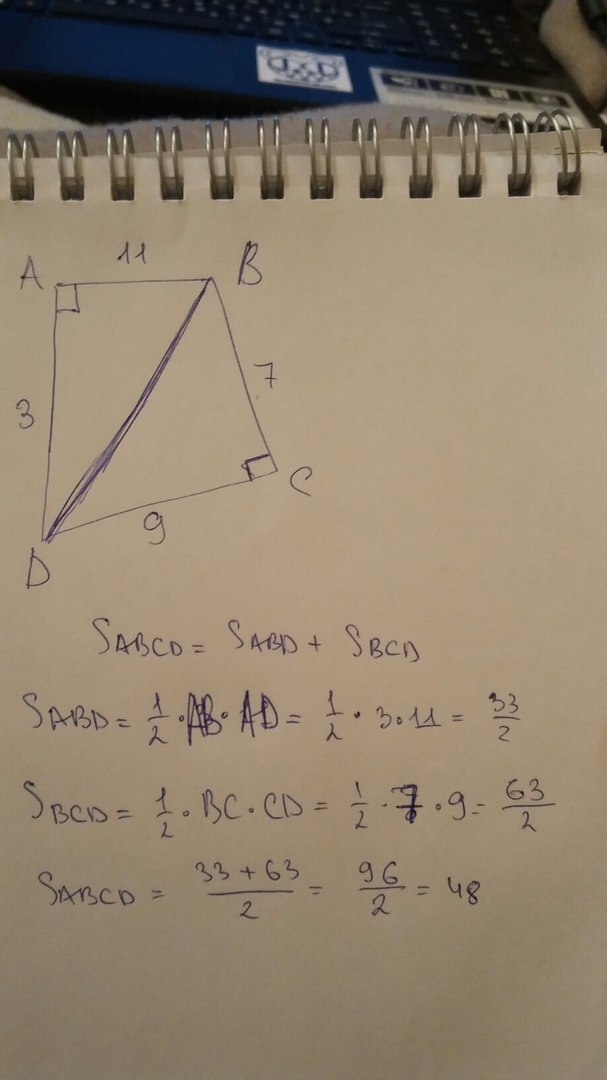 11
A B
7
3
C
9
D
S ABCD = S ABD + S BCD
S ABD = 1/2 · AB · AD = 1/2 · 3 · 11 = 33/2
S BCD = 1/2 · BC · CD = 1/2 · 7 · 9 = 63/2
S ABCD = (33 + 63)/2 = 96/2 = 48